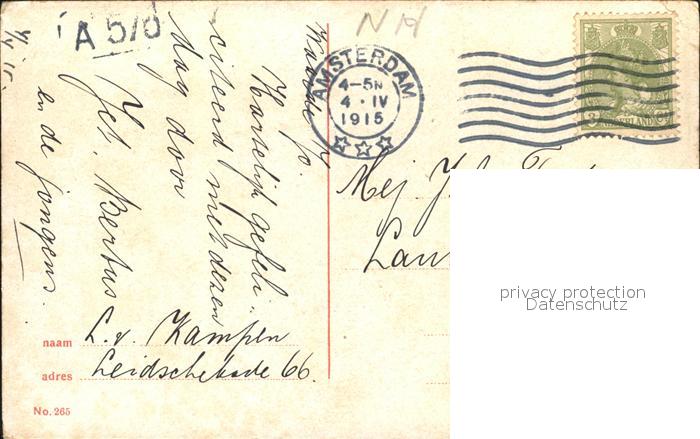 A 5/8
NH
AMSTERDAM
4-5N
4 · IV
1915
NEDERLAND
4/4 15.
Waarde Jo.
Hartelijk gefeli-
citeerd met dezen
dag door
Jet. Bertus
en de jongens.
Mej
Lau
privacy protection
Datenschutz
naam L. v. Kampen
adres Leidschekade 66.
No. 265